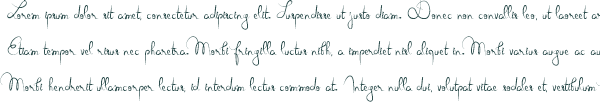 Lorem ipsum dolor sit amet, consectetur adipiscing elit. Suspendisse ut justo diam. Donec non convallis leo, ut laoreet ar
Etiam tempor vel risus nec pharetra. Morbi fringilla luctus nibh, a imperdiet nisl aliquet in. Morbi varius augue ac au
Morbi hendrerit ullamcorper lectus, id interdum lectus commodo at. Integer nulla dui, volutpat vitae sodales et, vestibulum